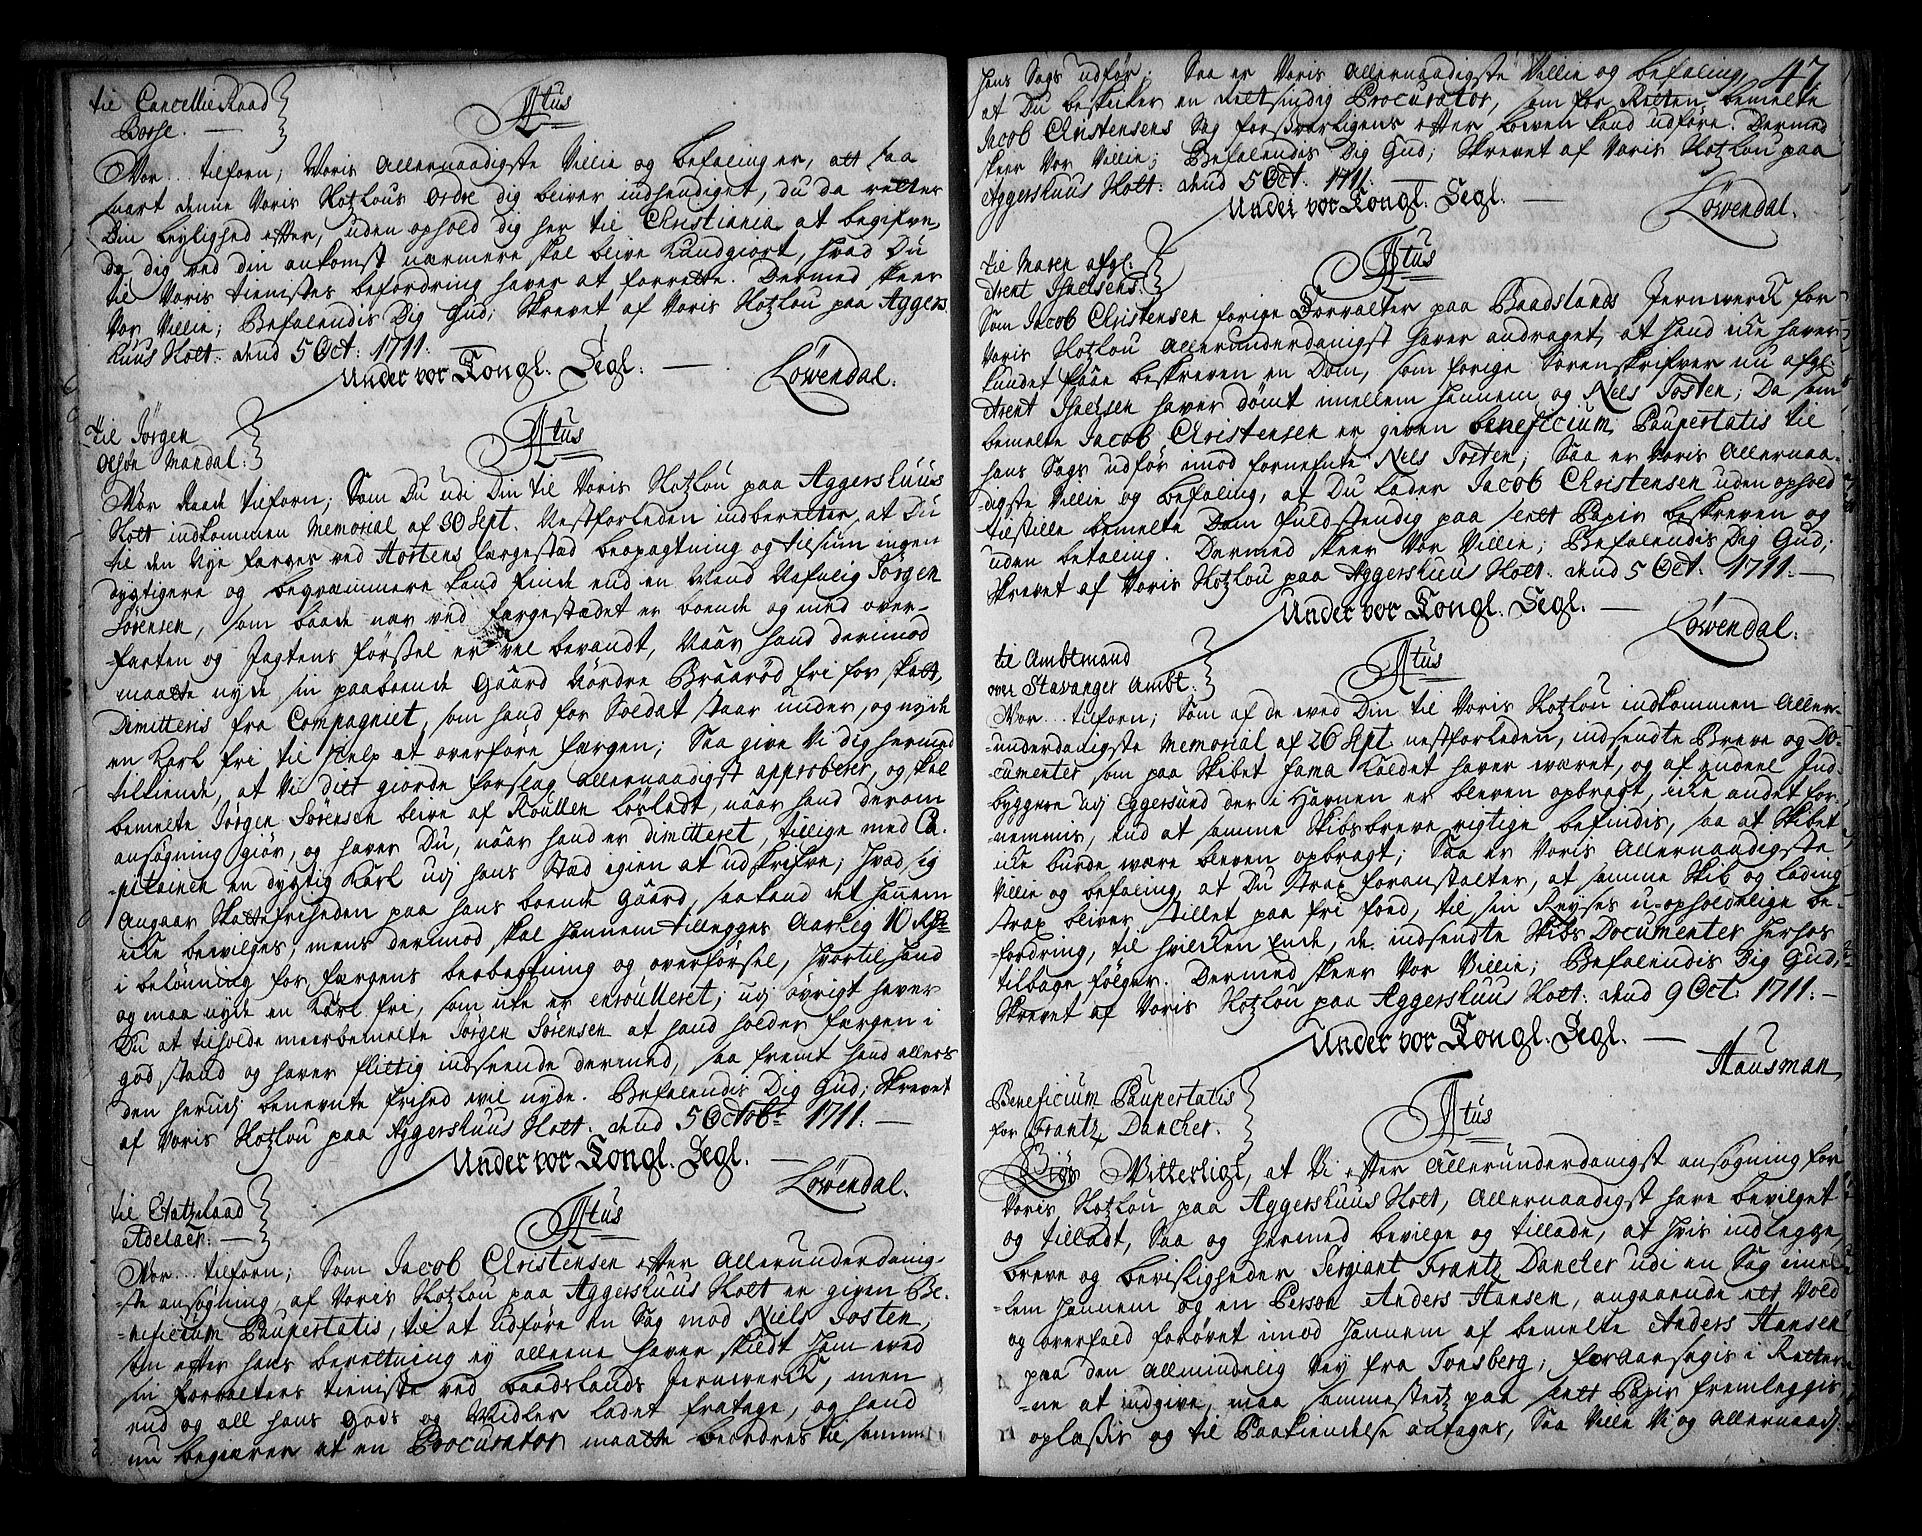 til Cancellie Raad
Borse.
Atus
Vor.. tilforn; Voris Allernaadigste Villie og befaling er, att saa
snart denne Voris Slotzlous ordre dig bliver indhendiget, du da retter
Din leylighed efter, uden ophold dig her til Christiania at begifve,
da dig ved din ankomst nærmere skal blive kundgiort, hvad Du
til Voris tienistes befordring haver at forrette. Dermed skeer
Vor Villie; Befalendis Dig Gud; Skrevet af Voris Slotzlou paa Aggers
huus Slott. dend 5 Oct: 1711.
Under vor Kongl. Segl.
Løvendal.
til Jørgen
Olsøn Mandal:
Atus
Vor Raade tilforn; Som Du udi Din til Voris Slotzlou paa Aggershuus
Slott indkommen Memorial af 30 Sept. Nestforleden indberetter, at Du
til den Nye færges ved Hortens færgestad beopagtning og tilsiun ingen
dygtigere og beqvæmmere kand finde end en Mand Nafnlig Jørgen
Sørensen, som baade nær ved færgestædet er boende og med over-
farten og Jagtens førssel er vel bevandt, Naar hand derimod
maatte nyde sin paaboende Gaard Nordre Braarød fri for skatt,
Dimitteris fra Compagniet, som hand for Soldat staar under, og nyde
en Karl fri til Hielp at overføre færgen; Saa give Vi dig hermed
tilkiende, at Vi ditt giorde forslag allernaadigst approberer, og skal
bemelte Jørgen Sørensen blive af Roullen løsladt, naar hand derom
ansøgning giør, og haver Du, naar hand er dimitteret, tillige med Ca-
pitainen en dygtig Karl udj hans Stæd igien at udskrifve; hvad sig
Angaar Skattefriheden paa hans boende Gaard, saa kand det hannem
icke bevilges, mens dermod skal hannem tillegges Aarlig 10 Rdr
i belønning for færgens beobagtning og overførsel, hvortil hand
og maa nyde en Karl fri, som icke er enroulleret; udj øvrigt haver
Du at tilholde meerbemelte Jørgen Sørensen at hand holder færgen i
god stand og haver flittig indseende dermed, saa fremt hand ellers
den herudj benevnte frihed vil nyde. Befalendis Dig Gud; Skrevet
af Voris Slotzlou paa Aggershuus Slott. dend 5 Octobr 1711.
Under vor Kongl. Segl.
Løvendal.
til Etatzraad
Adelaer.
Atus
Vor.. tilforn; Som Jacob Christensen efter Allerunderdanig-
ste ansøgning af Voris Slotzlou paa Aggershuus Slott er given Be-
neficium Paupertatis, til at udføre en Sag mod Niels Tosten,
som efter hans beretning ey alleene haver skildt ham ved
sin forvalters tieniste ved Baadslands Jernwerck, men
end og all hans Gods og Midler ladet fratage, og hand
nu begierer at en Procurator maatte beordres til samme
47
hans Sags udfør; Saa er Voris Allernaadigste Villie og befaling,
at Du beskicker en Retsindig Procurator, som for Retten bemelte
Jacob Christensens Sag forsvarligens efter loven kand udføre. Dermed
skeer Vor Villie; Befalendis Dig Gud; Skrevet af Voris Slotzlou paa
Aggershuus Slott. dend 5 Oct. 1711.
Under vor Kongl. Segl.
Løvendal.
til Maren afgl.
Arent Ihaelsens.
Atus
Som Jacob Christensen forige Forvalter paa Baadslands Jernwerck for
Voris Slotzlou Allerunderdanigst haver andraget, at hand icke haver
kundet faae beskreven en Dom, som forige Sorenskrifver nu afgl.
Arent Ihaelsen haver dømt imellem hannem og Niels Tosten; Da som
bemelte Jacob Christensen er given beneficium Paupertatis til
hans Sags udfør imod fornefnte Niels Tosten; Saa er Voris Allernaa-
digste Villie og befaling, at Du lader Jacob Christensen uden ophold
tilstille bemelte Dom fuldstendig paa slett Papir beskreven og
uden betaling. Dermed skeer Vor Villie; Befalendis Dig Gud;
Skrevet af Voris Slotzlou paa Aggershuus Slott. dend 5 Oct. 1711.
Under vor Kongl. Segl.
Løvendal.
til Ambtmand
over Stavanger Ambt.
Atus
Vor.. tilforn; Som af de med Din til Voris Slotzlou indkommen Aller-
underdanigste Memorial af 26 Sept nestforleden, indsendte Breve og Do-
cumenter som paa Skibet Fama kaldet haver været, og af nogle Ind-
byggere udj Eggersund der i Havnen er bleven opbragt, icke andet for-
nemmis, end at samme Skibsbreve rigtige befindis, saa at Skibet
icke burde være bleven opbragt; Saa er Voris Allernaadigste
Villie og befaling, at Du strax foranstalter, at samme Skib og lading
strax bliver stillet paa fri foed, til sin Reyses u-opholdelige be-
fordring, til hvilcken Ende, de indsendte Skibs Documenter herhos
tilbage følger. Dermed skeer Vor Villie; Befalendis Dig Gud;
Skrevet af Voris Slotzlou paa Aggershuus Slott. dend 9 Oct. 1711.
Under vor Kongl. Segl.
Hausman
Beneficium Paupertatis
for Frantz Dancher.
Atus
Giør Vitterligt, at Vi efter Allerunderdanigst ansøgning for
Voris Slotzlou paa Aggershuus Slott, Allernaadigst have bevilget
og tilladt, Saa og hermed bevilge og tillade, at hvis indlegge,
breve og bevisligheder Sergiant Frantz Dancher udi en Sag imel-
lem hannem og en Person Anders Hansen, angaaende ett Vold
og overfald forøvet imod hannem af bemelte Anders Hansen
paa den Allmindelig Vey fra Tonsberg; foraarsagis i Retter-
ne at indgive, maa sammestedz paa slett Papir fremleggis
oplæssis og til Paakiendelse antages, Saa Ville Vi og Allernaad: